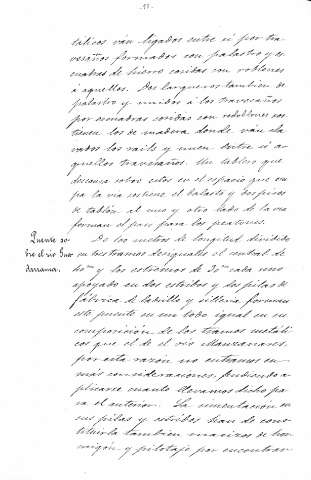 -17-
tálicos ván ligados entre si por tra-
vesaños formados con palastro y es-
cuadras de hierro cosidas con roblones
á aquellos. Dos largueros tambien de
palastro y unidos á los travesaños
por escuadras cosidas con redoblones sos-
tienen los de madera donde ván cla-
vados los rails y unen entre si a-
quellos travesaños. Un tablero que
descansa sobre estos en el espacio que ocu-
pa la vía sostiene el balasto y dos pisos
de tablón al uno y otro lado de la via
forman el paso para los peatones.
Puente so-
bre el rio Gua-
darrama.
De los metros de longitud dividido
en tres tramos desiguales el central de
40 m y los estremos de 30 m cada uno
apoyado en dos estribos y dos pilas de
fábrica de ladrillo y silleria, forman
este puente en un todo igual en su
composición de los tramos metáli-
cos que el de el rio Manzanares.
por esta razón no entramos en
más consideraciones, pudiendo a-
plicarse cuanto llevamos dicho pa-
ra el anterior. La cimentación en
sus pilas y estribos han de cons-
tituirla tambien macizos de hor-
migón y pilotaje por encontrar